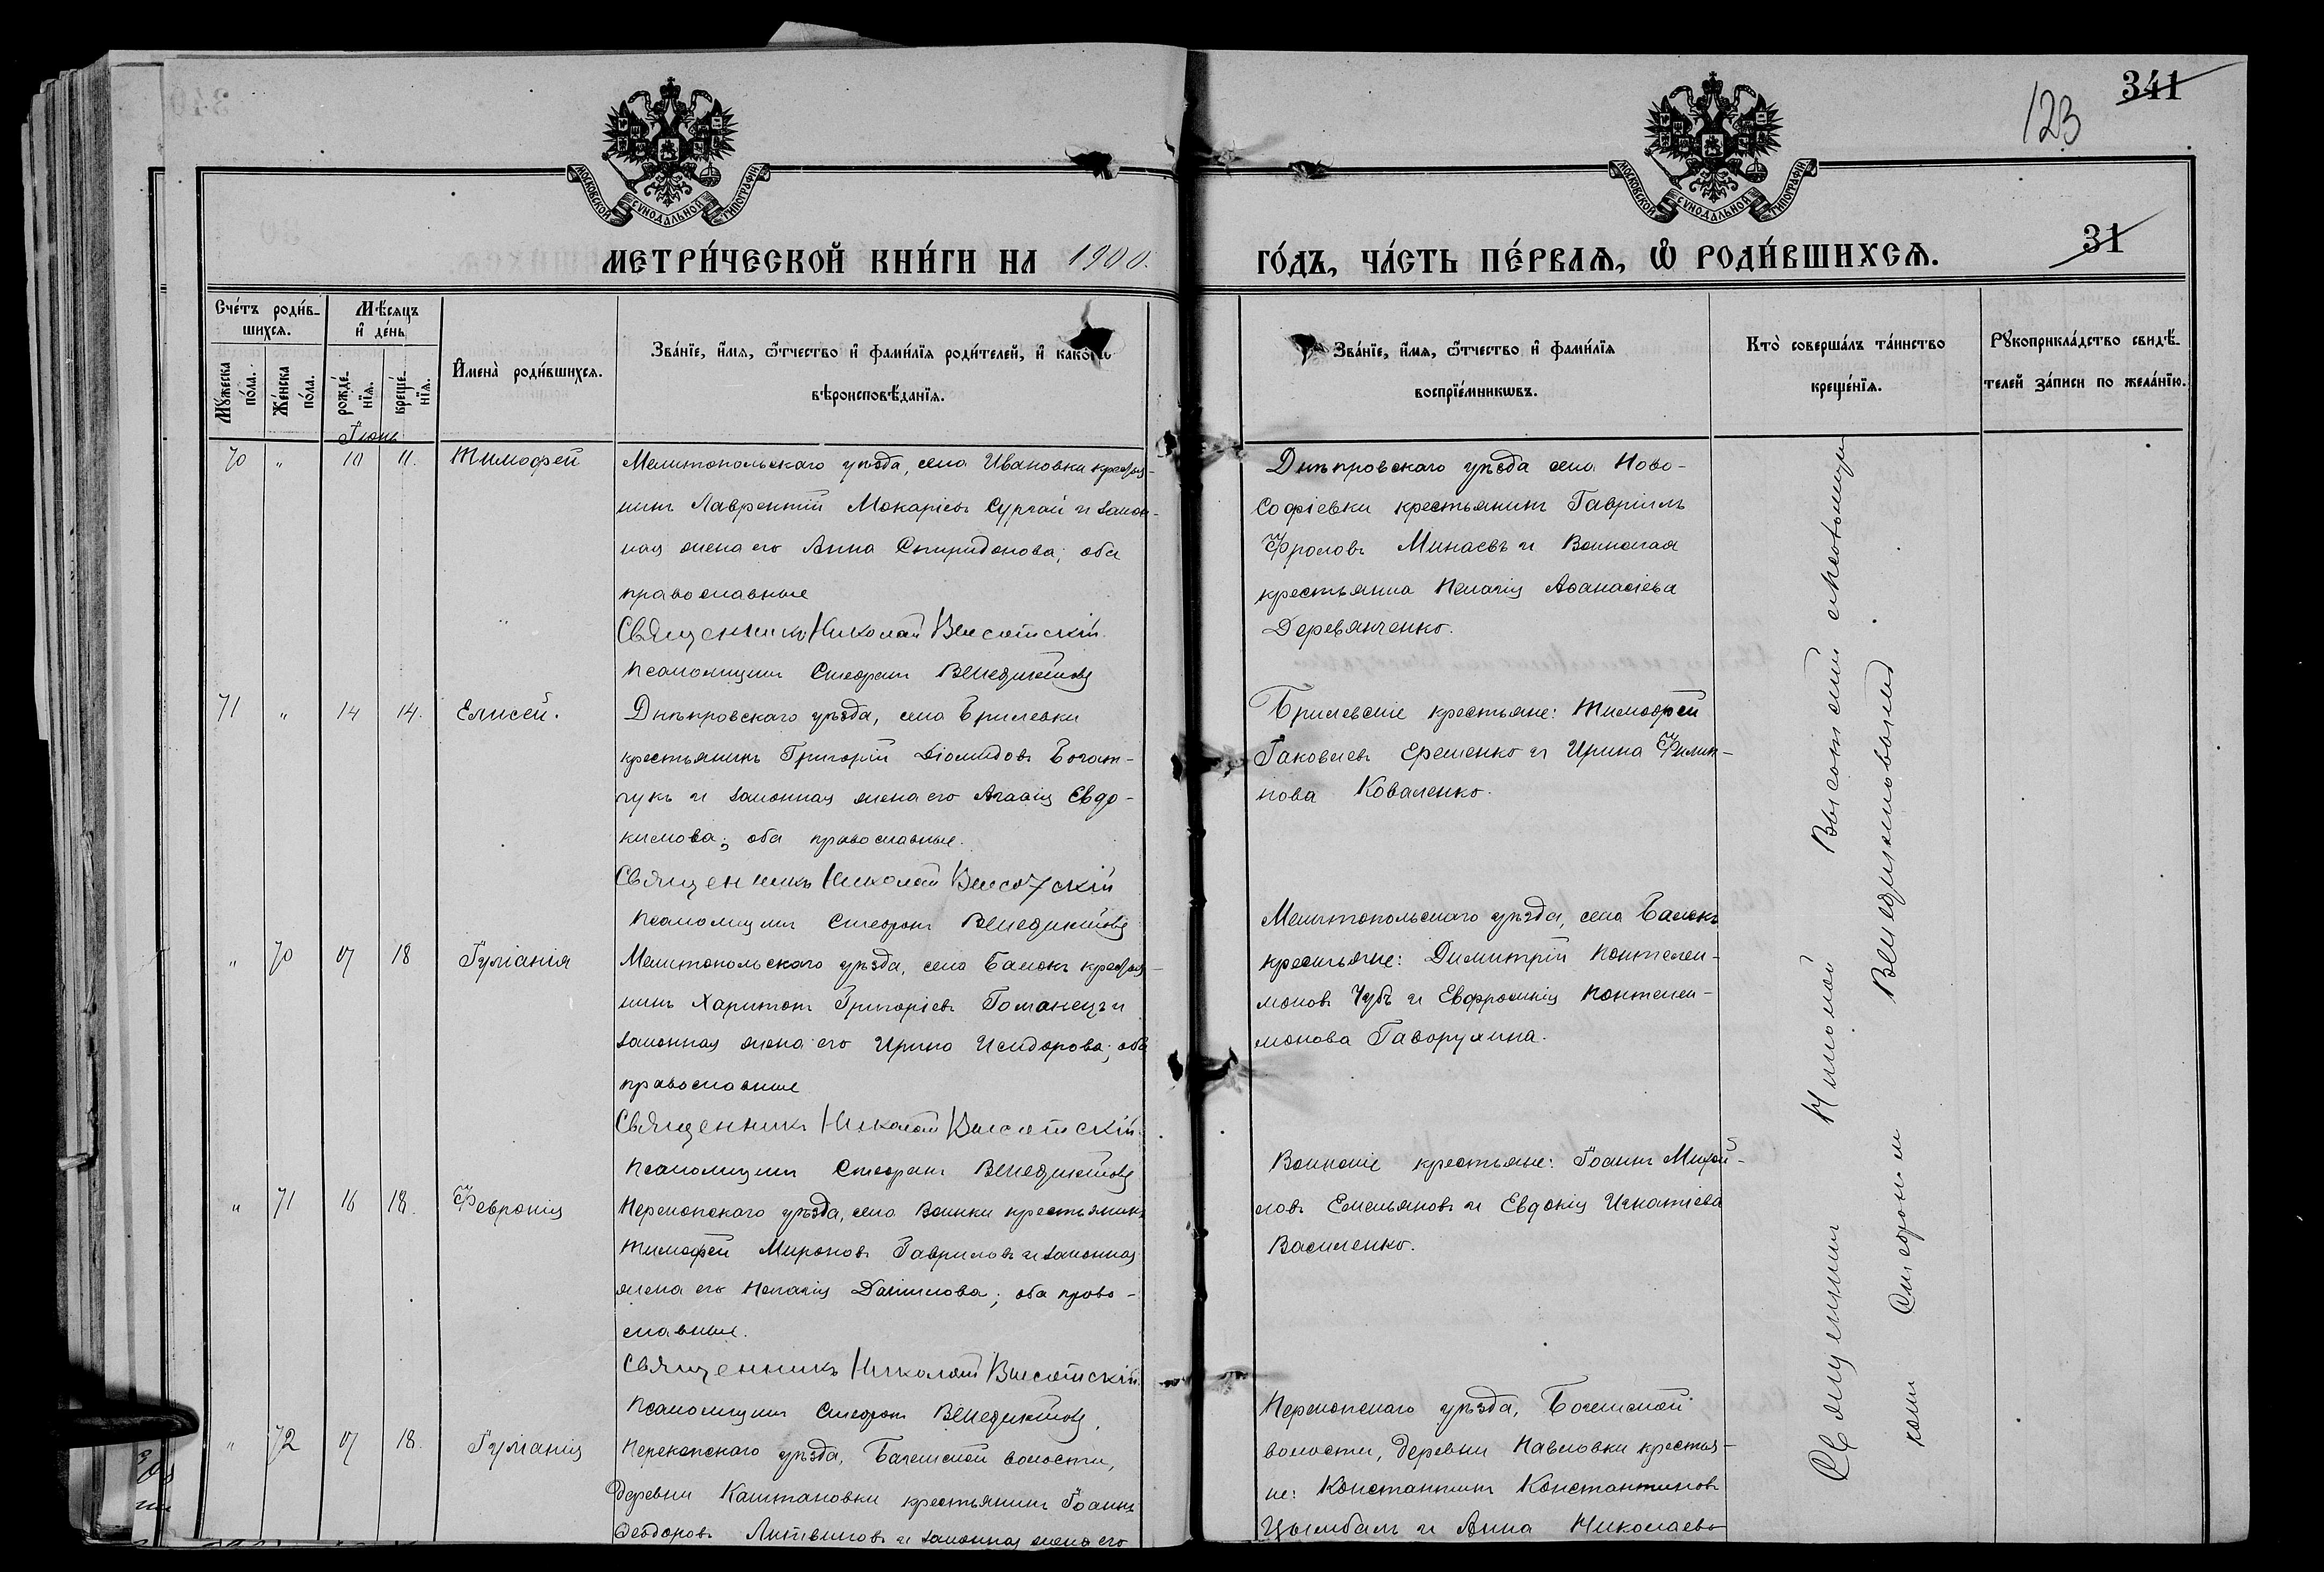 341
123
31
МОСКОВСКОЙ СѴНОДАЛЬНОЙ ТИПОГРАФІИ
МОСКОВСКОЙ СѴНОДАЛЬНОЙ ТИПОГРАФІИ
МЕТРИ́ЧЕСКОЙ КНИ́ГИ НА 1900.
ГО́ДЪ, ЧА́СТЬ ПЕ́РВАѦ, Ѡ҆ РОДИ́ВШИХСѦ.
Сче́тъ роди́в-
шихсѧ.
Мꙋ́жеска
по́ла.
Же́нска
по́ла.
Мѣ́сѧцъ
и҆ де́нь
рожде́-
нїѧ.
креще́-
нїѧ.
И҆мена̀ роди́вшихсѧ.
Зва́нїе, и҆́мѧ, ѻ҆́тчество и҆ фами́лїѧ роди́телей, и҆ како́гѡ
вѣроисповѣ́данїѧ.
Зва́нїе, и҆́мѧ, ѻ҆́тчество и҆ фами́лїѧ
воспрїе́мникѡвъ.
Кто̀ соверша́лъ та́инство
креще́нїѧ.
Рꙋкоприкла́дство свидѣ́-
телей за́писи по жела́нїю.
Іюнь
70 " 10 11. Тимофей
Мелитопольскаго уѣзда, села Ивановки крестья-
нинъ Лаврентій Макаріевъ Сургай и закон-
ная жена его Анна Спиридонова; оба
православные
Священникъ Николай Высотскій.
Псаломщикъ Стефанъ Венедиктовъ
Днѣпровскаго уѣзда села Ново-
Софіевки крестьянинъ Гавріилъ
Фроловъ Минаевъ и Воинская
крестьянка Пелагія Аѳанасіева
Деревянченко.
71 " 14 14. Елисей.
Днѣпровскаго уѣзда, села Брилевки
крестьянинъ Григорій Діомидовъ Богат-
чукъ и законная жена его Агаѳія Евдо-
кимова; оба православные.
Священникъ Николай Высотскій
Псаломщикъ Стефанъ Венедиктовъ
Брилевскіе крестьяне: Тимофей
Іаковлевъ Еременко и Ирина Филип-
пова Коваленко.
" 70 17 18 Іуліанія
Мелитопольскаго уѣзда, села Балокъ крестья-
нинъ Харитонъ Григоріевъ Гоманецъ и
законная жена его Ирина Исидорова; оба
православные
Священникъ Николай Высотскій.
Псаломщикъ Стефанъ Венедиктовъ
Мелитопольскаго уѣзда, села Балокъ
крестьяне: Димитрій Пантелей-
моновъ Чубъ и Евфросинія Пантелей-
монова Гаворухина.
" 71 16 18. Февронія
Перекопскаго уѣзда, села Воинки крестьянинъ
Тимофей Мироновъ Гавриловъ и законная
жена его Пелагія Даниилова; оба право-
славные.
Священникъ Николай Высотскій.
Псаломщикъ Стефанъ Венедиктовъ.
Воинскіе крестьяне: Іоаннъ Михай-
ловъ Емельяновъ и Евдокія Игнатіева
Василенко.
" 72 17 18. Іуліанія
Перекопскаго уѣзда, Багемской волости,
деревни Каштановки крестьянинъ Іоаннъ
Ѳеодоровъ Литвиновъ и законная жена его
Перекопскаго уѣзда, Богемской
волости, деревни Павловки крестья-
не: Константинъ Константиновъ
Цымбалъ и Анна Николаева
Священникъ Николай Высотскій съ псаломщи-
комъ Стефаномъ Венедиктовымъ.